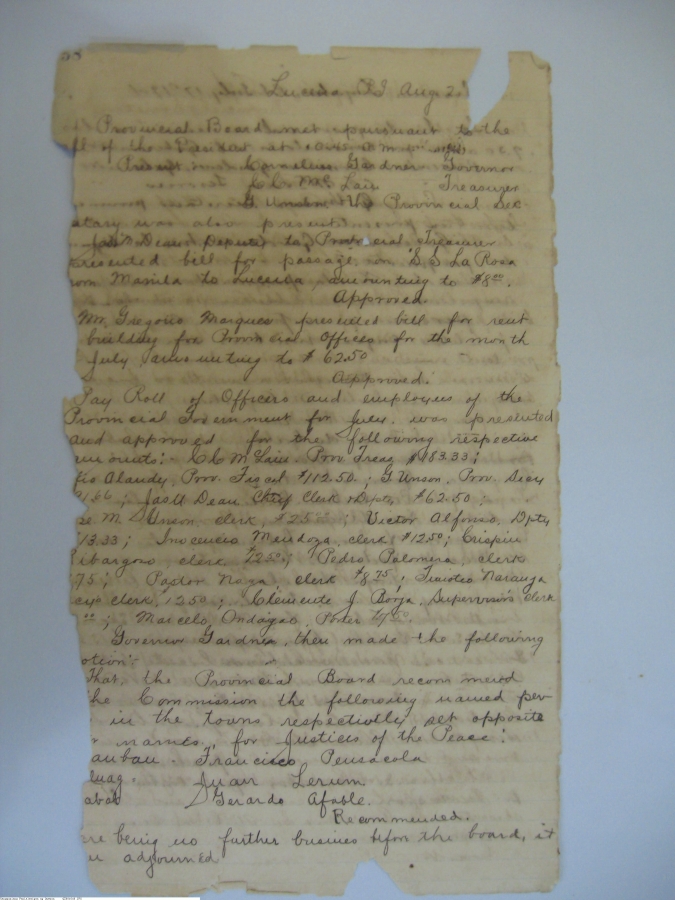 Lucena P.I. Aug 2
Provincial Board met pursuant to the
of the President at
Present Cornelius Gardner Governor
C C Mc Lain Treasurer
G Unson Provincial Sec
tary was also present
Jas U Dean Deputy to Provincial Treasurer
resented bill for passage on S S La Rosa
rom Manila to Lucena, amounting to $8.00.
Approved.
Mr. Gregorio Marquez presented bill for rent
building for Provincial Offices for the month
July amounting to $62.50
Approved.
Pay Roll of Officers and employees of the
Provincial Government for July was presented
and approved for the following respective
mounts:- C C Mc Lain Prov. Treas. $183.33;
Alandy, Prov. Fiscal $112.50; G Unson, Prov. Secy
1.66; Jas U Dean Chief Clerk & Dpty $62.50;
se M Unson, clerk, $25; Victor Alfonso, Dpty
13.33; Inocencio Mendoza, clerk $12.50; Crispin
ibargoso, clerk 12.50; Pedro Palomera, clerk
75; Pastor Naga, clerk $8.75; Timoteo Naranja
clerk, 12.50; Clemente J Borja, Supervisor's clerk
; Marcelo Ondagao, Porter 7.50.
Governor Gardner, then made the following
otion:
That, the Provincial Board recommend
he Commission the following named per
in the towns respectively set opposite
r names, for Justices of the Peace:
auban - Francisco Pensacola
luag - Juan Lerum
abat Gerardo Afable.
Recommended.
re being no further business before the board, it
adjourned